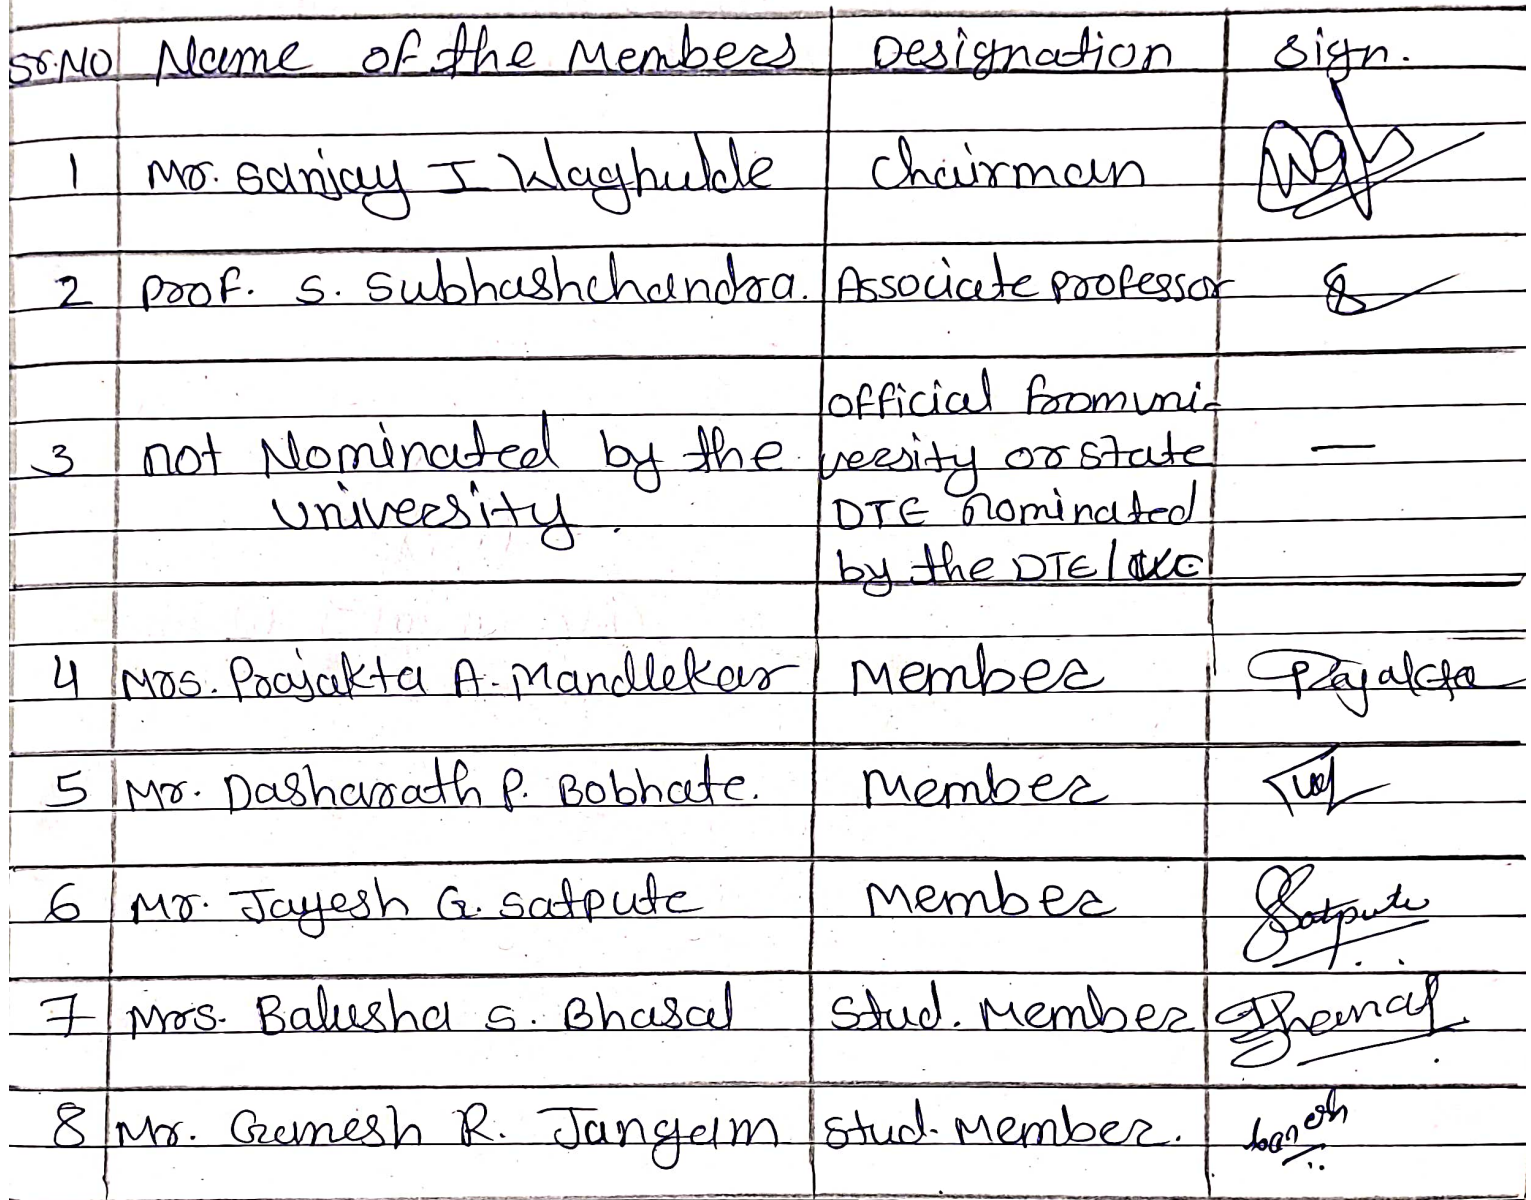 Sr.No Name of the Members Designation Sign.
1 Mr. Sanjay I Waghulde Chairman
2 Prof. S. Subhashchandra. Associate professor
official from uni-
3 not Nominated by the versity or state —
University. DTE nominated
by the DTE /
4 Mrs. Prajakta A. Mandlekar Member Prajakta
5 Mr. Dasharath P. Bobhate. Member
6 Mr. Jayesh G. Satpute Member Satpute
7 Mrs. Balusha S. Bharal Stud. Member
8 Mr. Ganesh R. Jangam Stud. Member. Ganesh